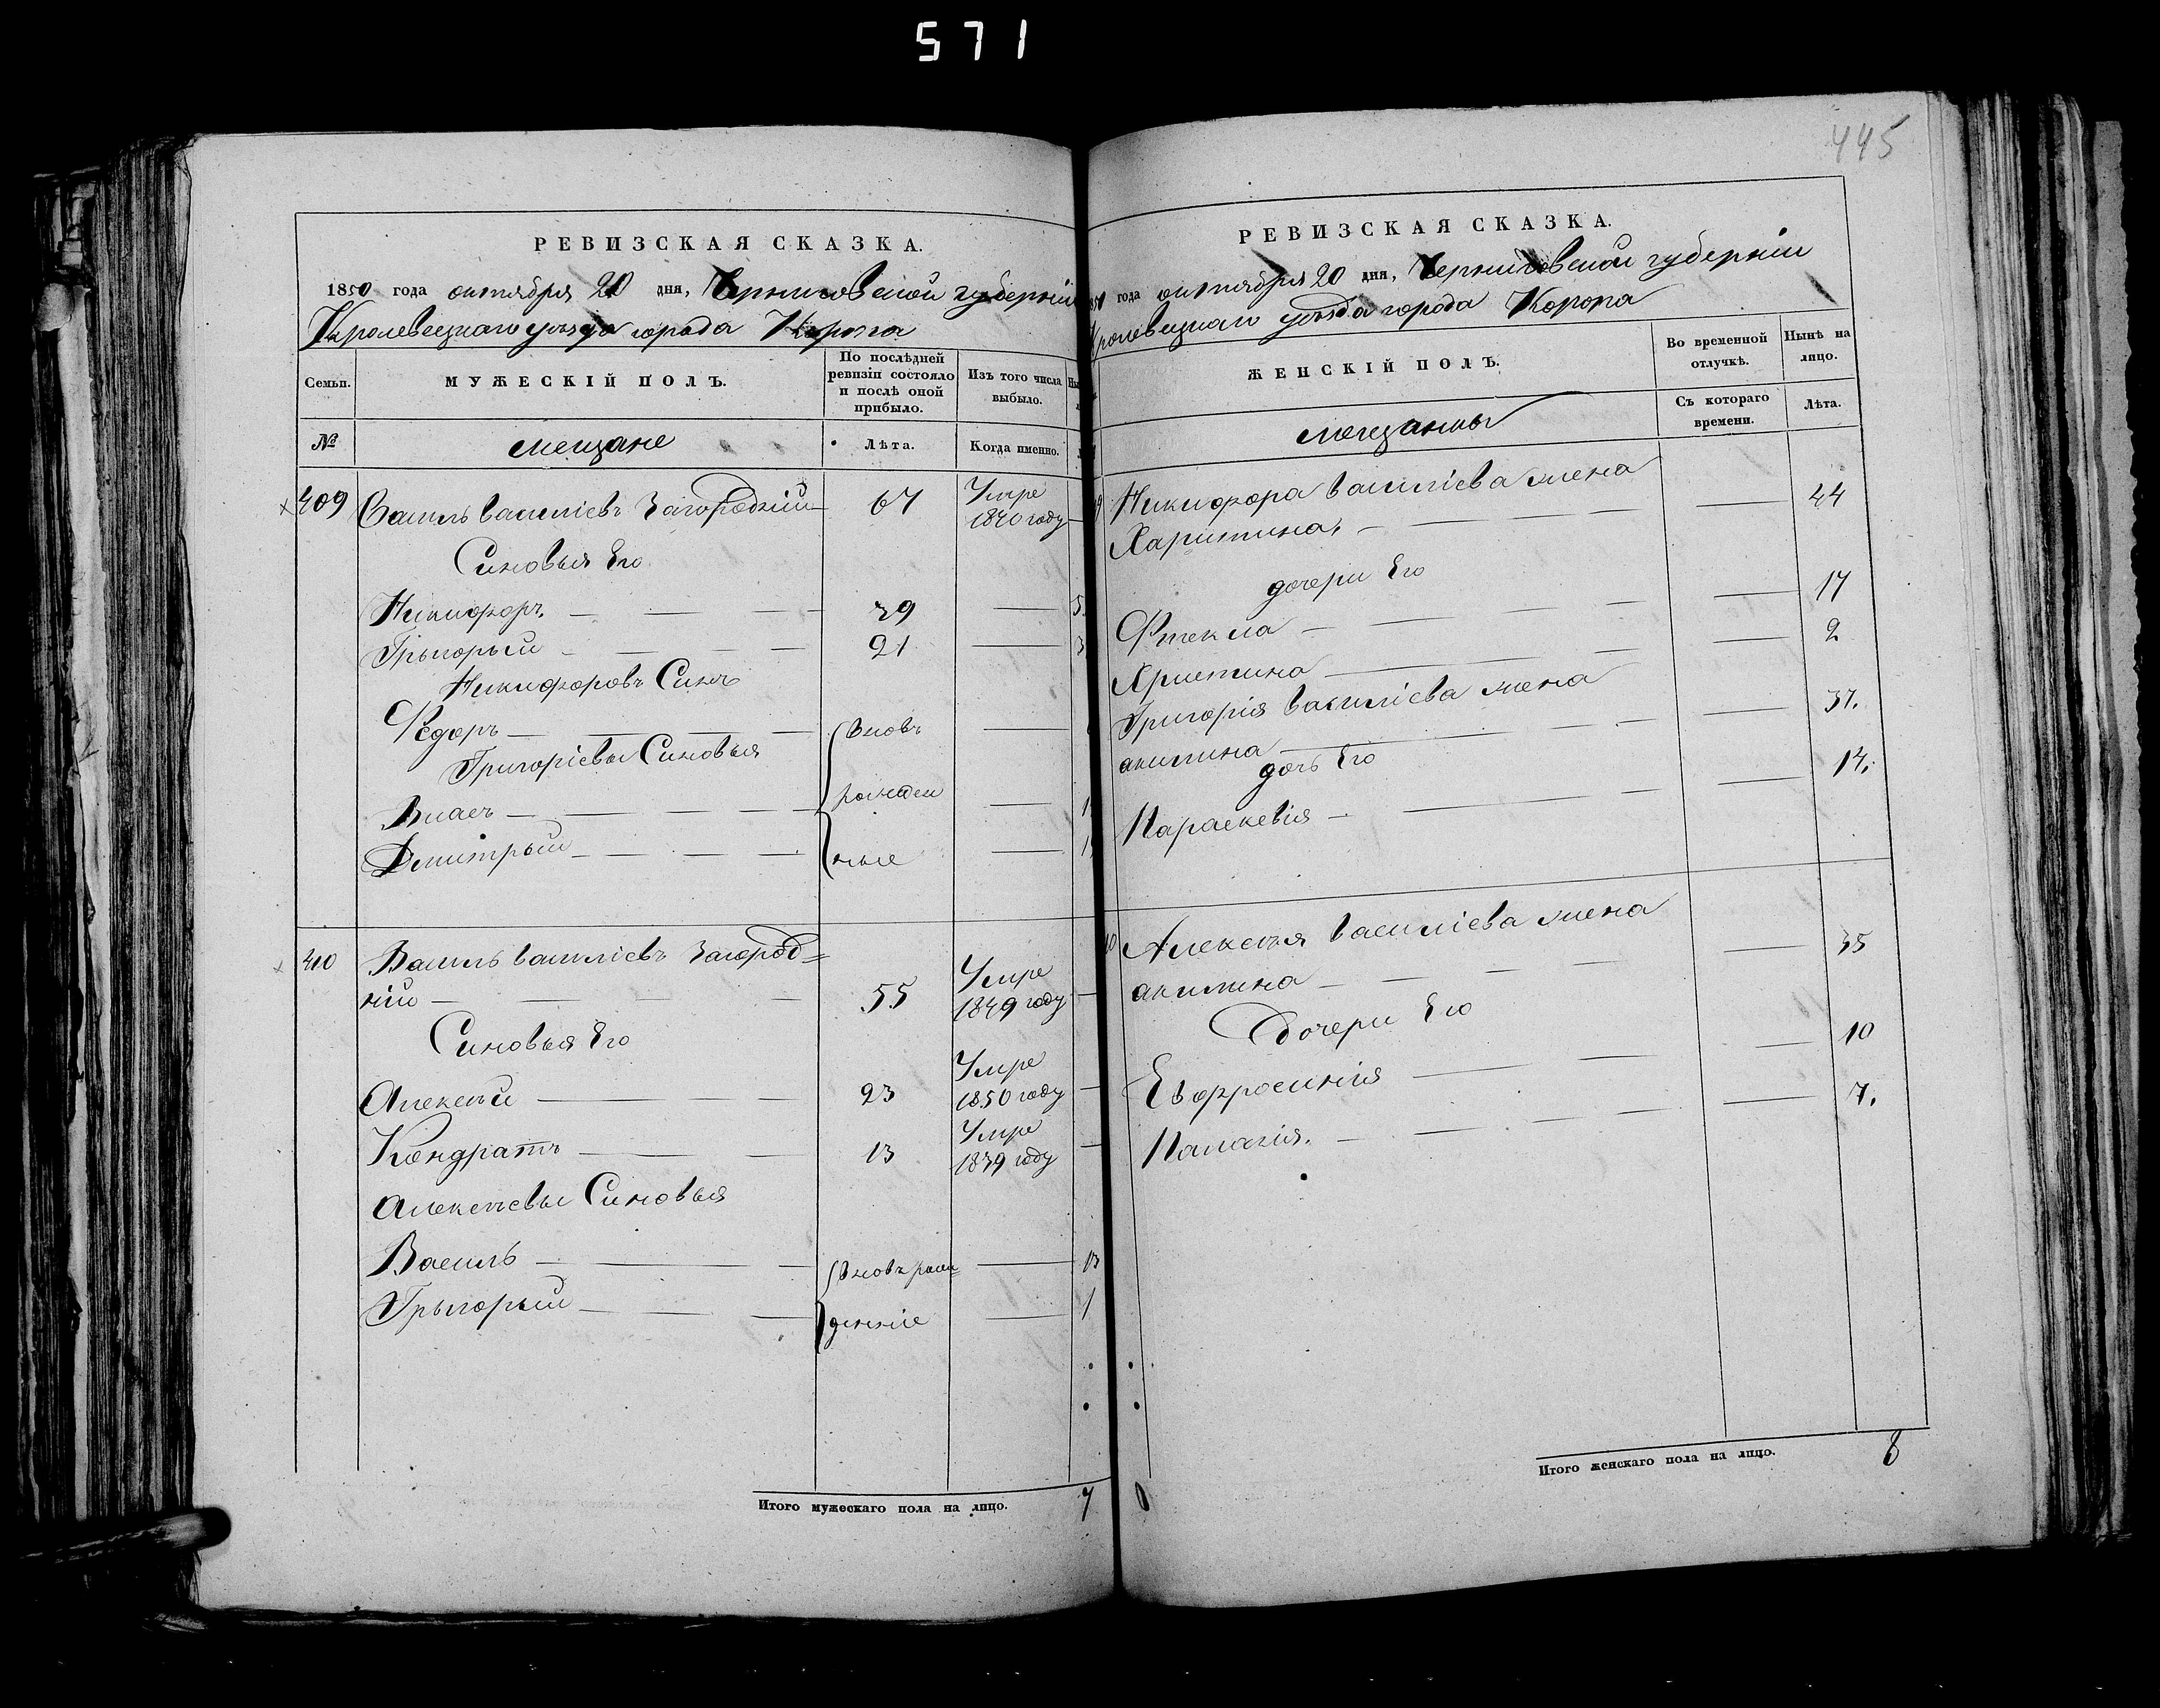 571
445
РЕВИЗСКАЯ СКАЗКА.
1850 года октября 20 дня, Черниговской губерніи
Кролевецкаго уѣзда города Коропа
Семьи. МУЖЕСКІЙ ПОЛЪ. По послѣдней ревизіи состояло и послѣ оной прибыло. Изъ того числа выбыло.
№ мещане Лѣта. Когда именно.
409 Василь Василіевъ Загородній 67 Умре 1840 году
Синовья Его
Никифоръ 39
Грыгорый 21
Никифоровъ Синъ
Федоръ Вновь
Григоріевы Синовья
Власъ рожден
Дмитрый ные
410 Василь Василіевъ Загород=
ній 55 Умре 1849 году
Синовья Его
Алексѣй 23 Умре 1850 году
Кондратъ 13 Умре 1839 году
Алексѣевы Синовья
Василь Вновь рож= 13
Грыгорый денніе 1
Итого мужескаго пола на лицо. 7
РЕВИЗСКАЯ СКАЗКА.
года октября 20 дня, Черниговской губерніи
Кролевецкаго уѣзда города Коропа
ЖЕНСКІЙ ПОЛЪ. Во временной отлучкѣ. Нынѣ на лицо.
мещанки Съ котораго времени. Лѣта.
Никифора Василіева жена
Харитина 44
дочери Его
Фтекла 17
Христина 2
Григорія Василіева жена
акилина 37.
дочь Его
Параскевія 14.
Алексѣя Василіева жена
акилина 35
Дочери Его
Евфросинія 10
Палагія. 7.
Итого женскаго пола на лицо. 8